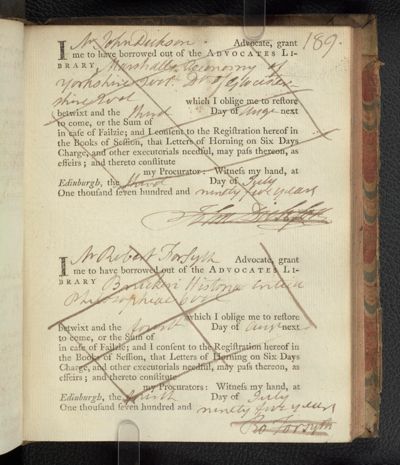 189.
I Mr John Dickson Advocate, grant
me to have borrowed out of the ADVOCATES LI-
BRARY, Marshalls Œconomy of
Yorkshire 2 vol. Do of Glocester-
shire 2 vol which I oblige me to restore
betwixt and the third Day of Augt next
to come, or the Sum of
in caſe of Failzie; and I conſent to the Regiſtration hereof in
the Books of Seſſion, that Letters of Horning on Six Days
Charge, and other executorials needful, may paſs thereon, as
effeirs; and thereto conſtitute
my Procurator: Witneſs my hand, at
Edinburgh, the third Day of July
One thouſand ſeven hundred and ninety five years
John Dickson
I Mr Robert Forsyth Advocate, grant
me to have borrowed out of the ADVOCATES LI-
BRARY Bruckeri Historia Critica
Philosophiae 6 vol
which I oblige me to reſtore
betwixt and the fourth Day of Augt next
to come, or the Sum of
in caſe of Failzie; and I conſent to the Regiſtration hereof in
the Books of Seſſion, that Letters of Horning on Six Days
Charge, and other executorials needful, may paſs thereon, as
effeirs; and thereto conſtitute
my Procurators: Witneſs my hand, at
Edinburgh, the fourth Day of July
One thouſand ſeven hundred and ninety five years
Ro Forsyth